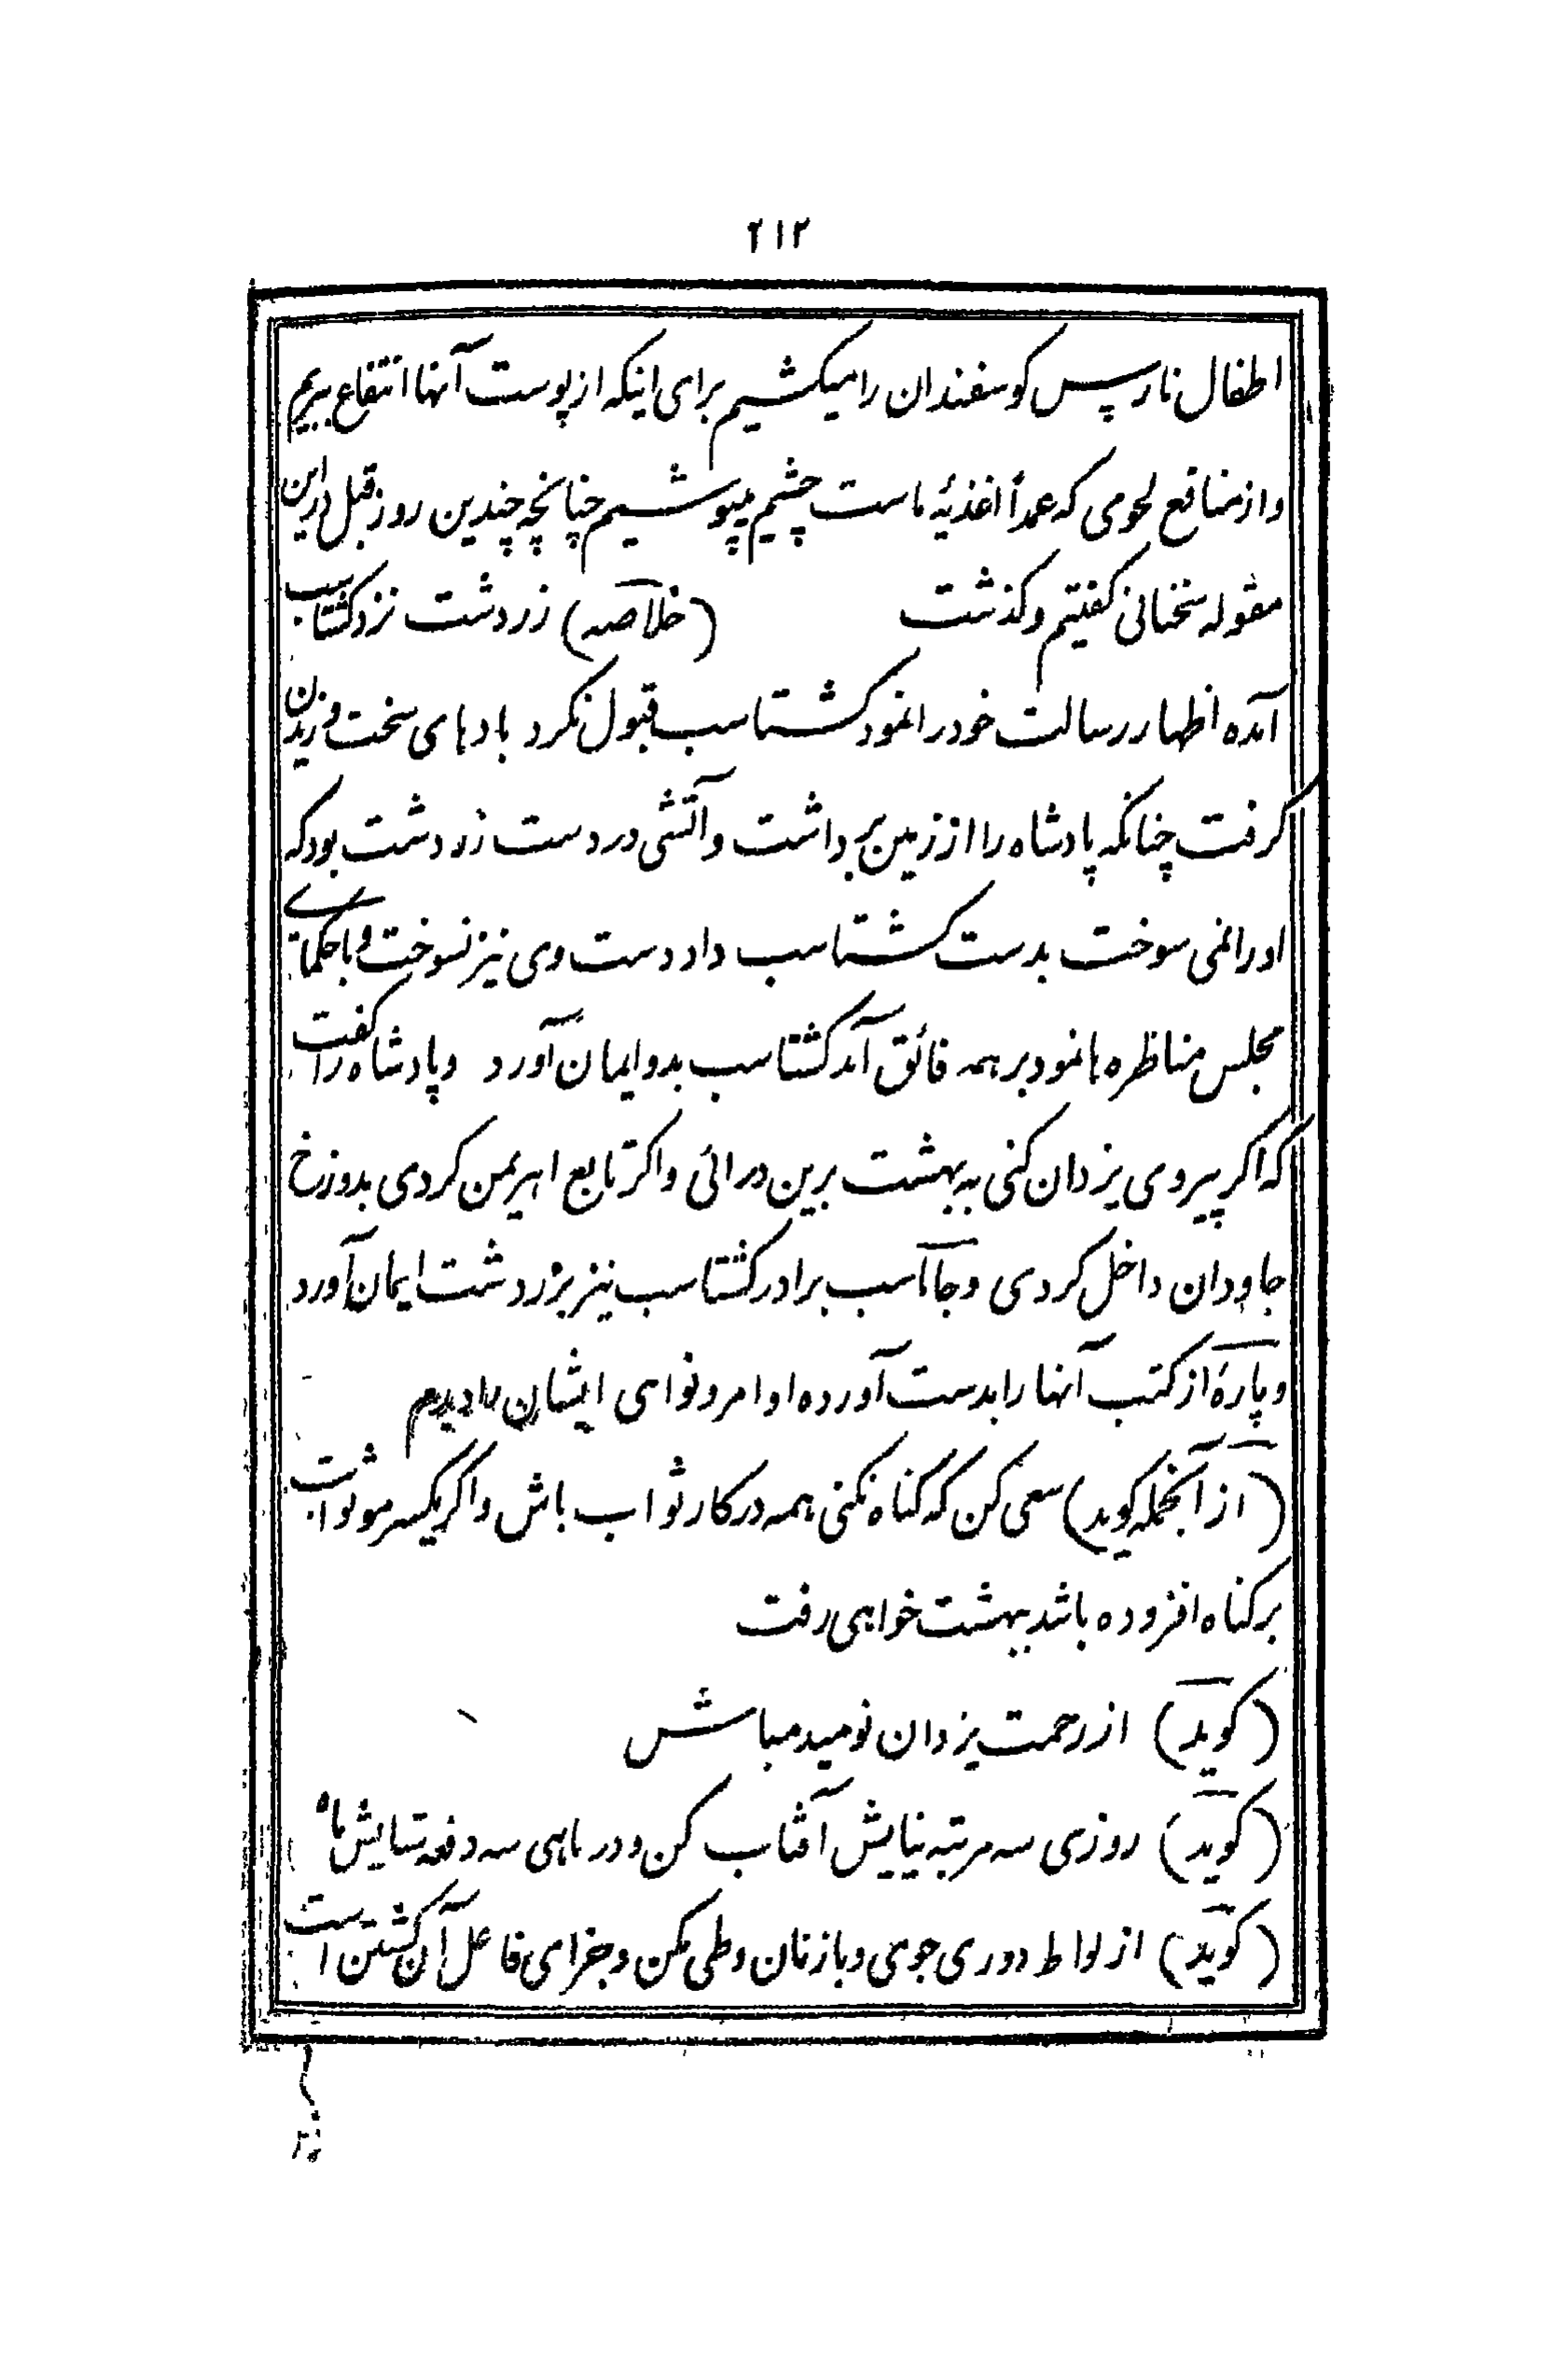 ۲۱۲
اطفال نارس کوسفندان را میکشیم برای اینکه از پوست آنها انتفاع ببریم
و از منافع لحومی که عمداً اغذیهٔ ماست چشم میپوشیم چنانچه چندین روز قبل در این
مقوله سخنانی کفتیم و کذشت (خلاصه) زردشت نزد کشتاسب
آمده اظهار رسالت خود را نمود کشتاسب قبول نکرد بادهای سخت وزیدن
کرفت چنانکه پادشاه را از زمین برداشت و آتشی در دست زردشت بود که
او را نمی سوخت بدست کشتاسب داد دست وی نیز نسوخت و با حکمای
مجلس مناظره ها نمود بر همه فائق آمد کشتاسب بدو ایمان آورد و پادشاه را کفت
که اکر پیروی یزدان کنی به بهشت برین در ائی و اکر تابع اهریمن کردی بدوزخ
جاودان داخل کردی و جاآسب برادر کشتاسب نیز بزردشت ایمان آورد
و پارهٔ از کتب آنها را بدست آورده اوامر و نواهی ایشان را دیدم
(از آنجمله کوید) سعی کن که کناه نکنی همه در کار ثواب باش و اکر یکسر مو ثوابت
بر کناه افزوده باشد ببهشت خواهی رفت
(کوید) از رحمت یزدان نومید مباش
(کوید) روزی سه مرتبه نیایش آفتاب کن و در ماهی سه دفعه ستایش ماه
(کوید) از لواط دوری جوی و با زنان وطی مکن و جزای فاعل آن کشتن است